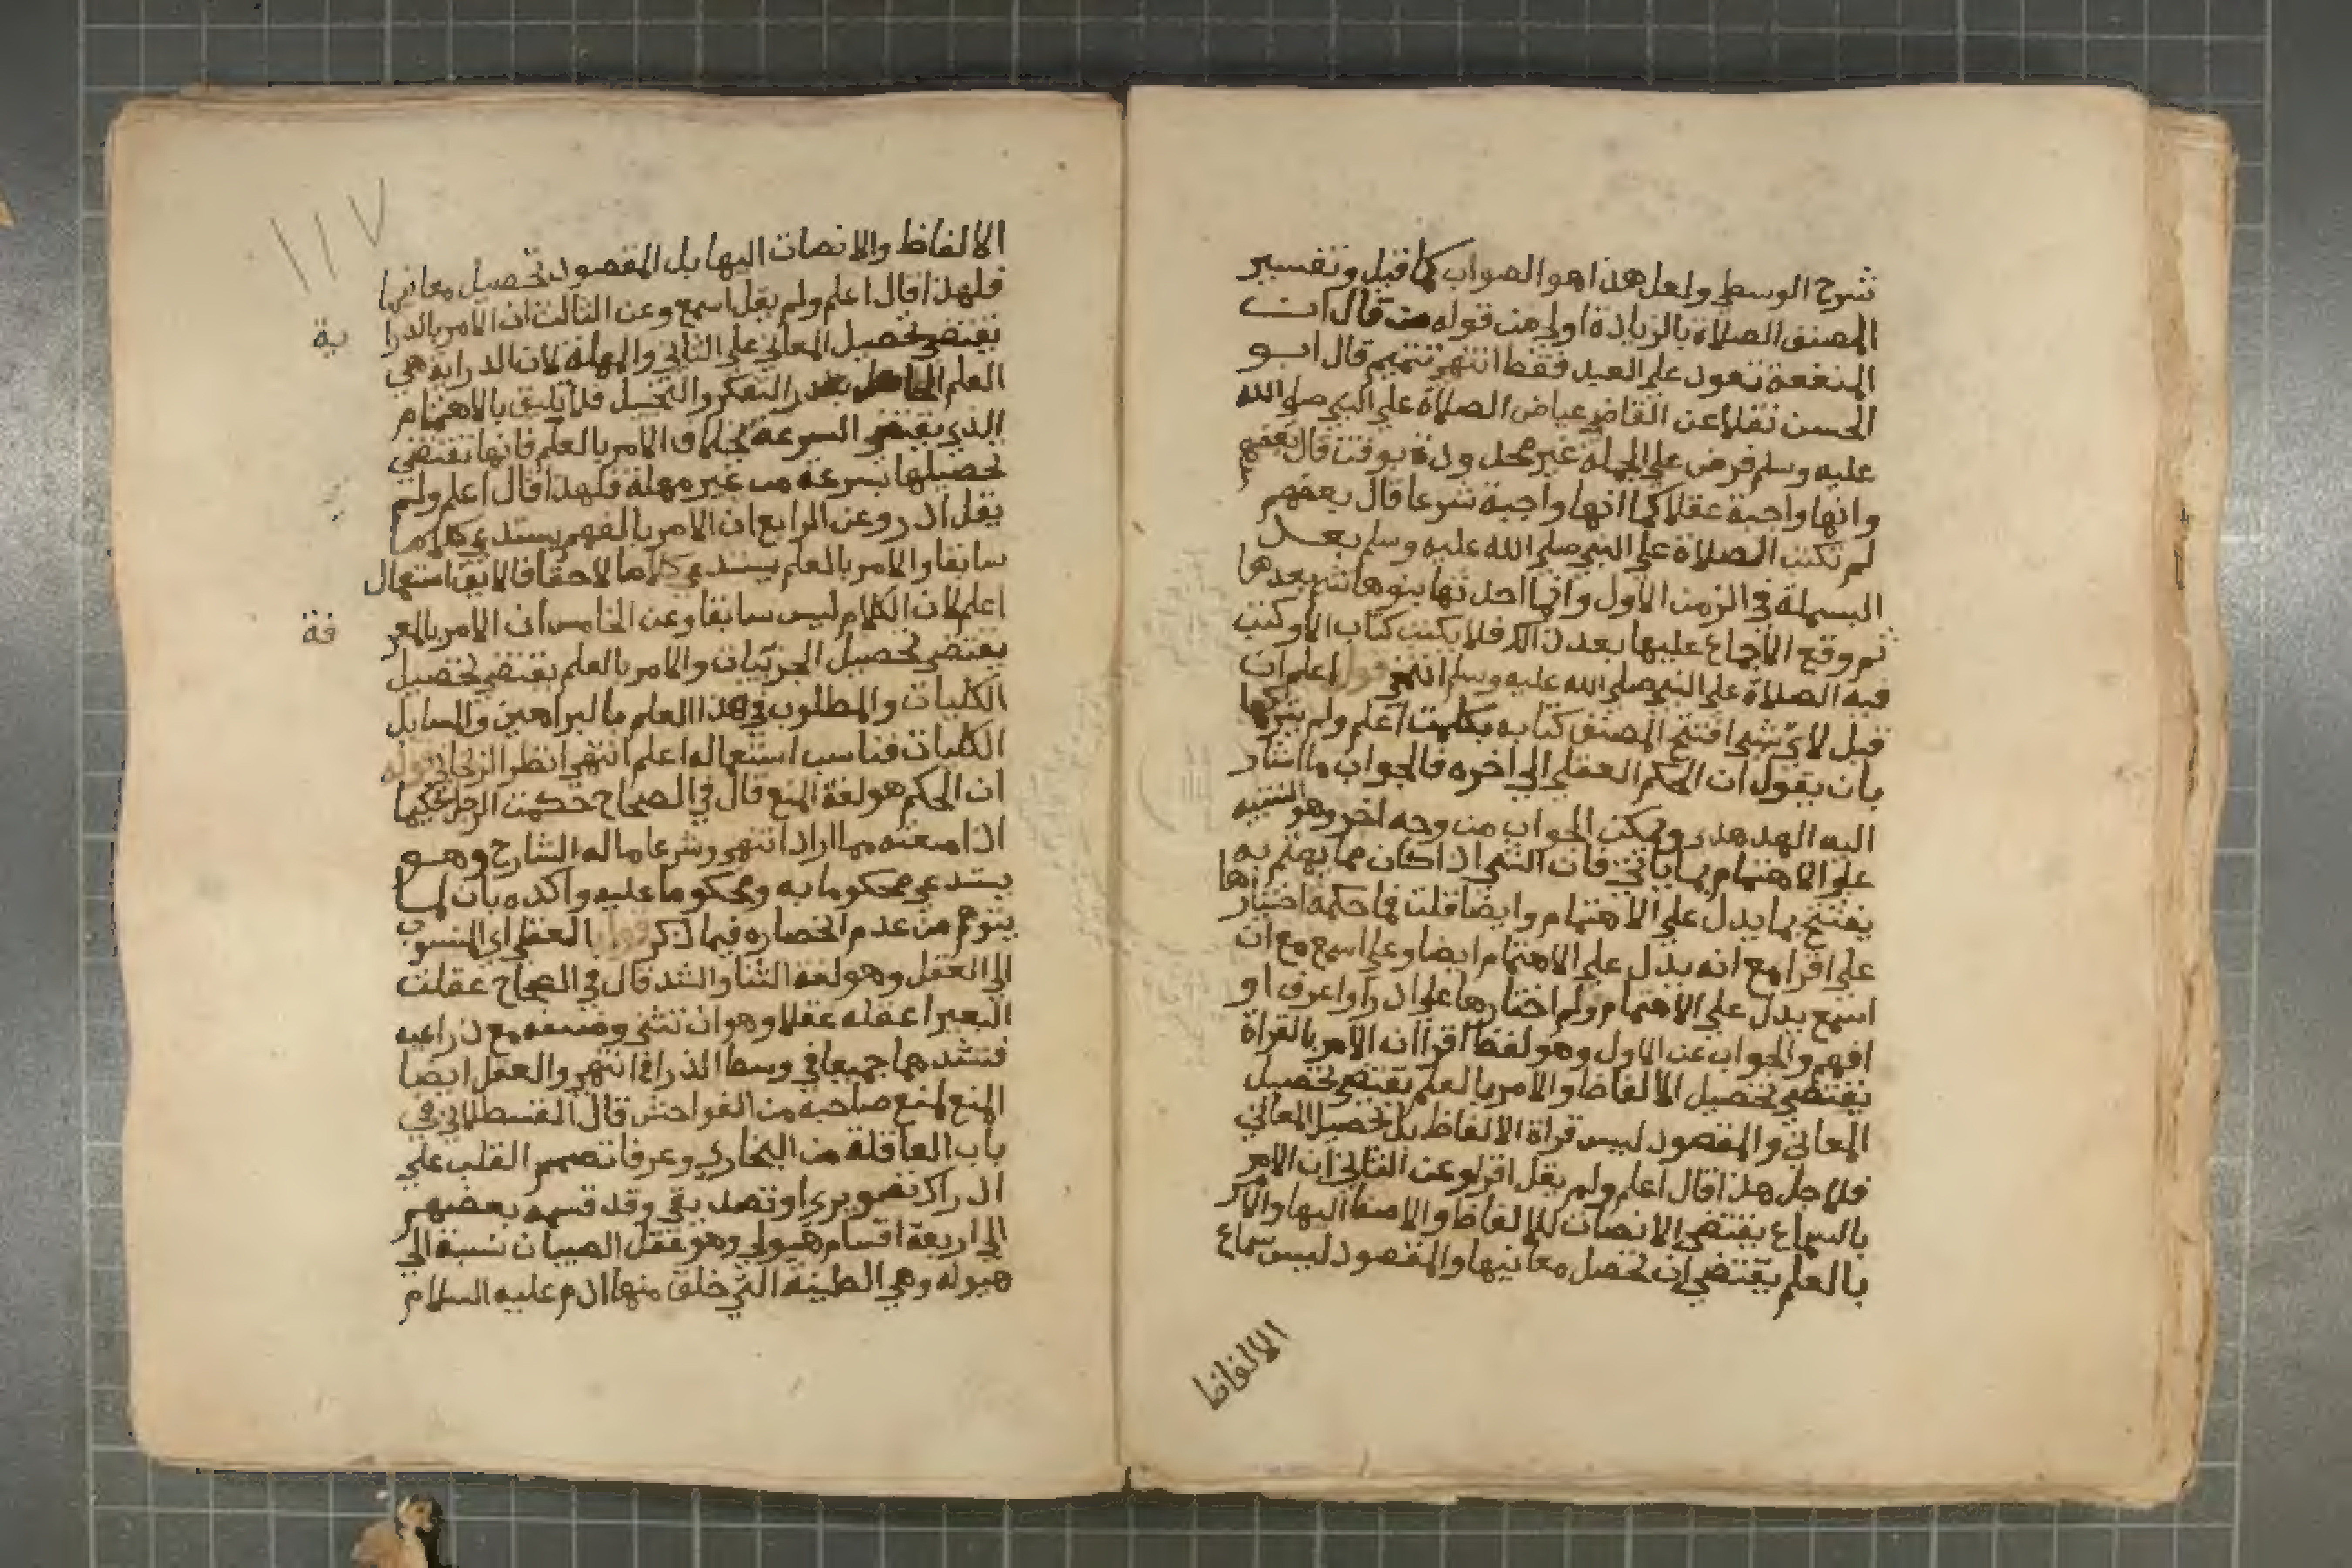 شرح الوسطي ولعل هذا هو الصواب كما قيل وتفسير
المصنف الصلاة بالزيادة اولي من قوله من قال ان
المنفعة تعود علي العبد فقط انتهي تتميم قال ابو
الحسن نقلا عن القاضي عياض الصلاة علي النبي صلي الله
عليه وسلم فرض علي الجملة غير محدودة بوقت قال بعضهم
وانها واجبة عقلا كما انها واجبة شرعا قال بعضهم
لم تكتب الصلاة علي النبي صلي الله عليه وسلم بعد
البسملة في الزمن الاول وانما احدثها بنوها شم بعدها
ثم وقع الاجماع عليها بعد ذالك فلا يكتب كتاب الا وكتب
فيه الصلاة علي النبي صلي الله عليه وسلم انتهي قوله اعلم ان
قيل لاي شي افتتح المصنف كتابه بكلمت اعلم ولم يتركها
بان يقول ان الحكم العقلي الي اخره فالجواب ما اشار
اليه الهدهدي ويمكن الجواب من وجه اخر وهو التنبيه
علي الاهتمام بما ياتي فان الشي اذا كان مما يهتم به
يفتتح بما يدل علي الاهتمام وايضا قلت فما حكمة اختيارها
علي اقرا مع انه يدل علي الاهتمام ايضا وعلي اسمع مع ان
اسمع يدل علي الاهتمام ولم اختارها علي ادرا واعرف او
افهم والجواب عن الاول وهو لفظ اقرا ان الامر بالقراة
يقتضي تحصيل الالفاظ والامر بالعلم يقتضي تحصيل
المعاني والمقصود ليس قراة الالفاظ بل تحصيل المعاني
فلاجل هذا قال اعلم ولم يقل اقرا وعن الثاني ان الامر
بالسماع يقتضي الانصات للالفاظ والاصغا اليها والامر
بالعلم يقتضي ان تحصل معانيها والمقصود ليس سماع
الالفاظ
١١٧
الالفاظ والانصات اليها بل المقصود تحصيل معانيها
فلهذا قال اعلم ولم يقل اسمع وعن الثالث ان الامر بالدرا
ية
يقتضي تحصيل المعاني علي التاني والمهلة لان الدراية هي
العلم الحاصل بعد التفكر والتخيل فلا يليق بالاهتمام
الذي يقتضي السرعة بخلاف الامر بالعلم فانها تقتضي
تحصيلها بسرعة من غير مهلة فلهذا قال اعلم ولم
يقل ادر وعن الرابع ان الامر بالفهم يستدعي كلاما
سابقا والامر بالعلم يستدعي كلاما لاحقا فالايق استعمال
اعلم لان الكلام ليس سابقا وعن الخامس ان الامر بالمعر
فة
يقتضي تحصيل الجزئيات والامر بالعلم يقتضي تحصيل
الكليات والمطلوب في هذا العلم بالبراهين والمسايل
الكليات فناسب استعماله اعلم انتهي انظر الزلخاني قوله
ان الحكم هو لغة المنع قال في الصحاح حكمت الرجل تحكيما
اذا منعته مما اراد انتهي وشرعا ما له الشارح وهو
يستدعي محكوما به ومحكوما عليه واكده بان لما
يتوهم من عدم انحصاره فيما ذكر قوله العقلي اي المنسوب
الي العقل وهو لغة الثنا والشد قال في الصحاح عقلت
البعير اعقله عقلا وهو ان تثني وضيفه مع ذراعيه
فتشدهما جميعا في وسط الذراع انتهي والعقل ايضا
المنع لمنع صاحبه من الفواحش قال القسطلاني في
باب العاقلة من البخاري وعرفا تصميم القلب علي
ادراك تصويري او تصديقي وقد قسمه بعضهم
الي اربعة اقسام هيولي وهو عقل الصبيان نسبة الي
هيوله وهي الطينة التي خلق منها ادم عليه السلام